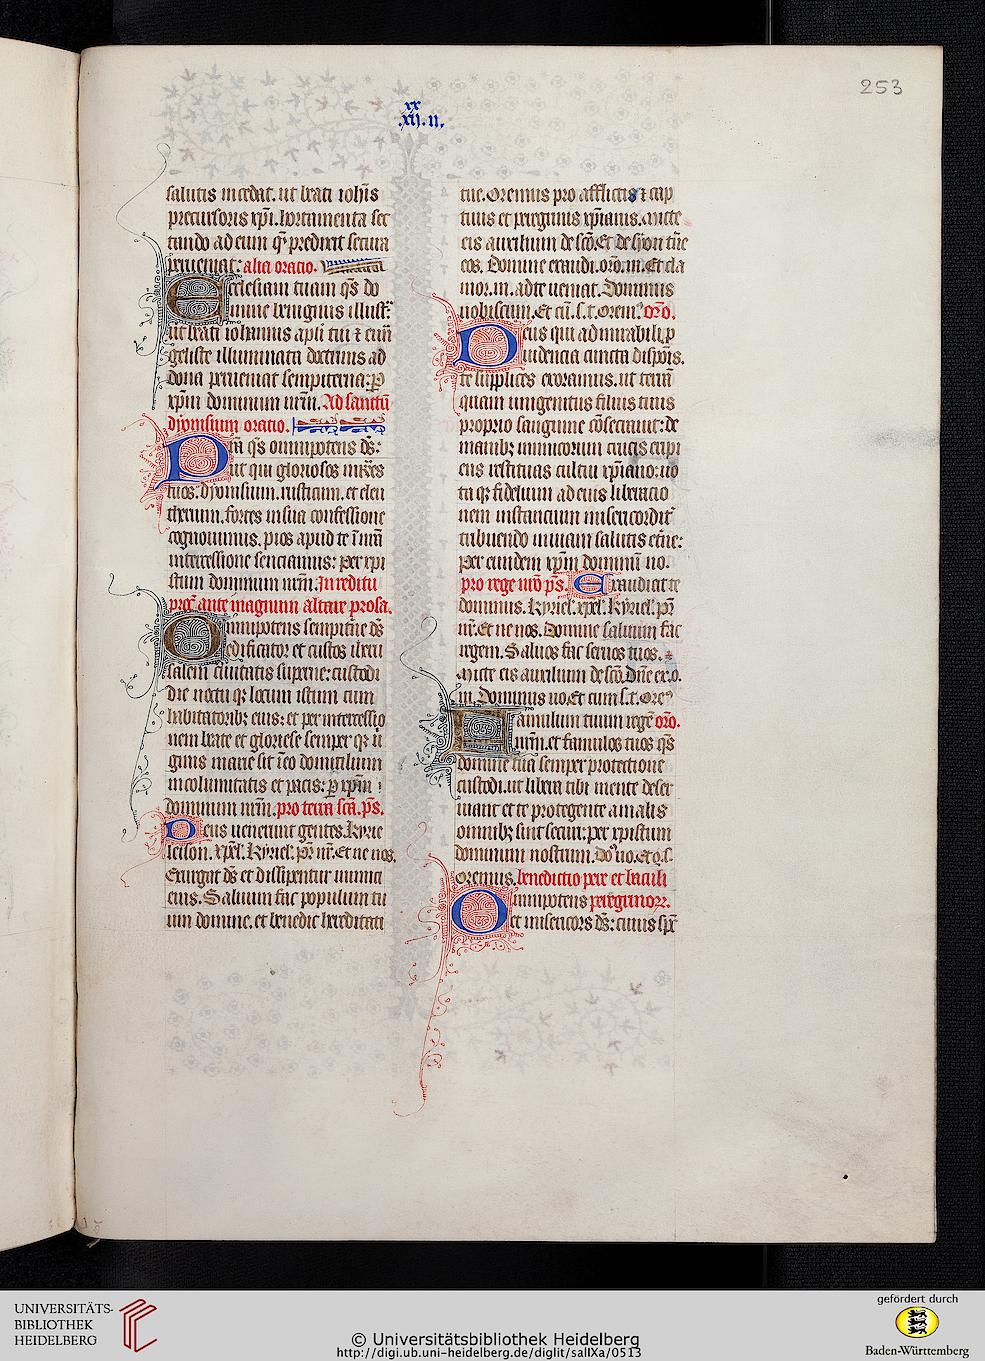 253
xx
.xij.ij.
salutis incedat. ut beati ioh̄is
precursoris xp̄i. hortamenta sec
tando ad eum q̄ predixit secura
perueniat: alia oratio.
Ecclesiam tuam q̄s do
mine benignus illustra
ut beati iohannis apl̄i tui ⁊ euā
geliste illuminata doctrinis ad
dona perueniat sempiterna: ꝑ
xp̄m dominum nr̄m. Ad sanctū
dyonisium oratio.
Pr̄a q̄s omnipotens ds̄:
ut qui gloriosos mr̄es
tuos. dyonisium. rusticum. et eleu
therium. fortes in sua confessione
cognouimus. pios apud te ī nr̄a
intercessione senciamus: per xpi
stum dominum nr̄m. In reditu
ante magnum altare prosa.
Omnipotens sempitn̄e ds̄
edificator et custos iheru
salem ciuitatis superne: custodi
die noctu qꝫ locum istum cum
habitatoribꝫ eius: et per intercessio
nem beate et gloriose semper qꝫ ui
ginis marie sit ī eo domicilium
incolumitatis et pacis: ꝑ xp̄m
dominum nr̄m. pro terra sc̄a. ps̄.
Deus uenerunt gentes. kyrie
leison. xpel̄. kyriel̄. pr̄ nr̄. Et ne nos.
Exurgat ds̄ et dissipentur inimici
eius. Saluum fac populum tu
um domine. et benedic hereditati
tue. Oremus pro afflictis ⁊ cap
tiuis et peregrinis xp̄ianis. Mitte
eis auxilium de sc̄o. Et de syon tūe
eos. Domine exaudi. orō. m. Et cla
mor. m. ad te ueniat. Dominus
uobiscum. Et cū. s. t. Orem̄. orō.
Deus qui admirabili ꝓ
uidencia cuncta dispōis.
te supplices exoramus. ut terrā
quam unigenitus filius tuus
proprio sanguine cōsecrauit: de
manibꝫ inimicorum crucis eripi
ens restituas cultui xp̄iano: uo
ta qꝫ fidelium ad eius liberacio
nem instancium misericordit̄
tribuendo in uiam salutis et̄ne:
Per eundem xp̄m dominū no.
pro rege nr̄o ps̄. Exaudiat te
dominus. Kyriel̄. xpel̄. Kyriel̄. pr̄
nr̄. Et ne nos. Domine saluum fac
regem. Saluos fac seruos tuos.
Mitte eis auxilium de sc̄o. Dn̄e ex. o.
m. Dominus uo. Et cum s. t. Orem̄
Famulum tuum regē orō.
nr̄m. et famulos tuos q̄s
domine tua semper protectione
custodi. ut libera tibi mente deser
uiant et te protegente a malis
omnibꝫ sint securi: per xpistum
dominum nostrum. Do. uo. Et cū. s.
Oremus. benedictio pere et baculi
Omnipotens peregrinorꝫ.
et misericors ds̄: cuius spē
UNIVERSITÄTS-
BIBLIOTHEK
HEIDELBERG
© Universitätsbibliothek Heidelberg
http://digi.ub.uni-heidelberg.de/diglit/salIXa/0513
gefördert durch
Baden-Württemberg